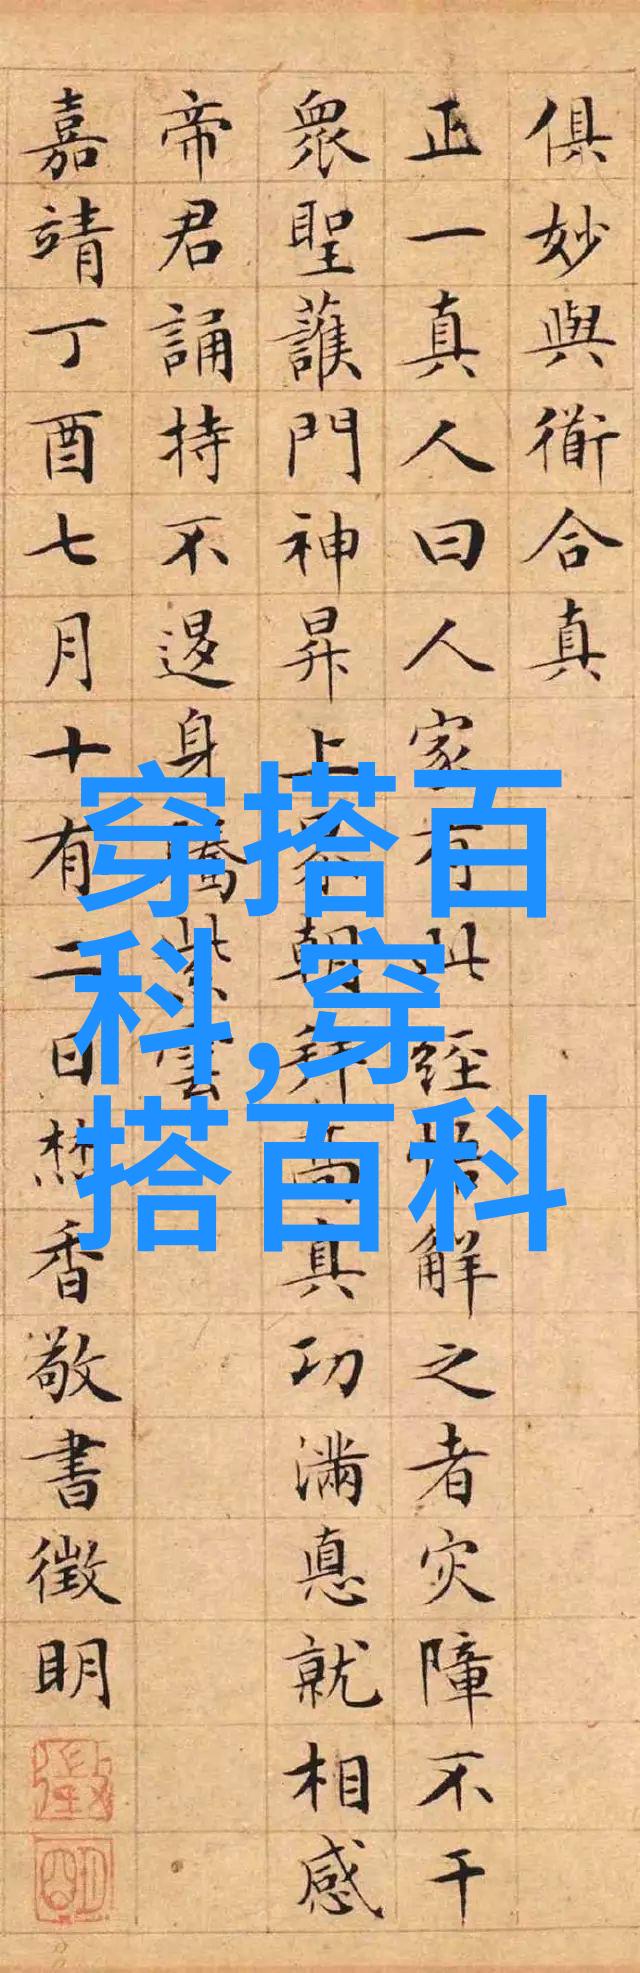 俱妙與衜合真
正一真人曰人家有此經悟解之者灾障不干
衆聖護門神昇上界朝拜高真功滿悳就相感
帝君誦持不退身騰紫雲
嘉靖丁酉七月十有二日焚香敬書徵明
徵
明
穿搭百
科,穿
搭百科